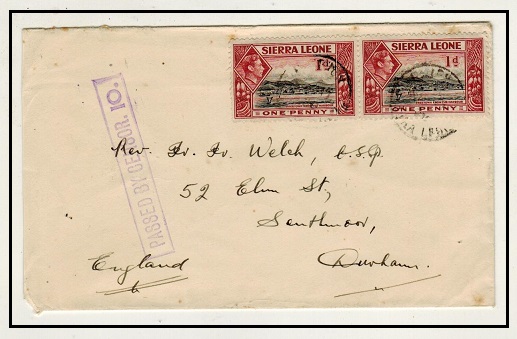 SIERRA LEONE
1d
ONE PENNY
SIERRA LEONE
1d
ONE PENNY
PASSED BY CENSOR. 10.
Rev. Fr. Fr. Welch, C.S.Sp.
52 Elm St,
Southmoor,
England Durham.